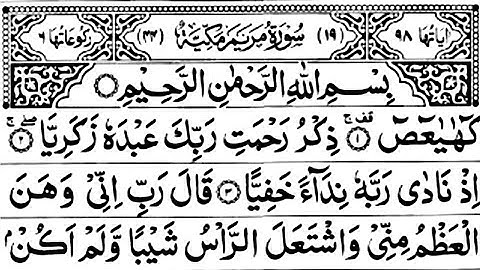 اٰیَاتُهَا ۹۸ (۱۹) سُوْرَةُ مَرْیَمَ مَكِّیَّةٌ (۴۴) رُكُوْعَاتُهَا ۶
بِسْمِ اللّٰهِ الرَّحْمٰنِ الرَّحِیْمِ ۝
كٓهٰیٰعٓصٓ ۝۱ قف ج ذِكْرُ رَحْمَتِ رَبِّكَ عَبْدَهٗ زَكَرِیَّا ۝۲ صلے ج
اِذْ نَادٰی رَبَّهٗ نِدَآءً خَفِیًّا ۝۳ قَالَ رَبِّ اِنِّیْ وَهَنَ
الْعَظْمُ مِنِّیْ وَاشْتَعَلَ الرَّاْسُ شَیْبًا وَّلَمْ اَكُنْۢ